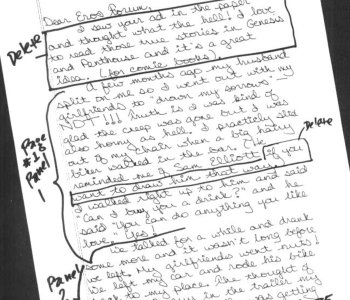 Dear Eros Forum,
I saw your ad in the paper
and thought what the hell! I love
to read those true stories in Genesis
and Penthouse and it's a great
idea. (for comic books)
Delete
A few months ago my husband
split on me so I went out with my
girlfriends to "drown my sorrows".
NOT!!! Truth is I was kind of
glad the creep was gone but I was
also horny as hell. I practically slid
out of my chair when a big hairy
biker walked in the bar. He
reminded me of Sam Elliott (if you
want to draw him that way).
Delete
I walked right up to him and said
"Can I buy you a drink?" and he
said "You can do anything you like
love." Yes!
Page #18
Panel 1
We talked for a while and drank
some more and it wasn't long before
we left. My girlfriends went nuts!
We left my car and rode his bike
back to my place. The thought of
in the trailer my
was getting
Panel 2